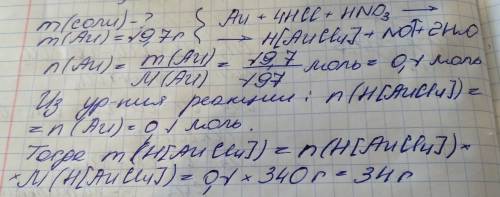 m(соли) - ? { Au + 4HCl + HNO₃ →
m(Au) = 19,7г → H[AuCl₄] + NO↑ + 2H₂O
n(Au) = m(Au)/M(Au) = 19,7/197 моль = 0,1 моль
Из ур-ния реакции: n(H[AuCl₄]) =
= n(Au) = 0,1 моль.
Тогда m(H[AuCl₄]) = n(H[AuCl₄]) ×
× M(H[AuCl₄]) = 0,1 × 340г = 34г